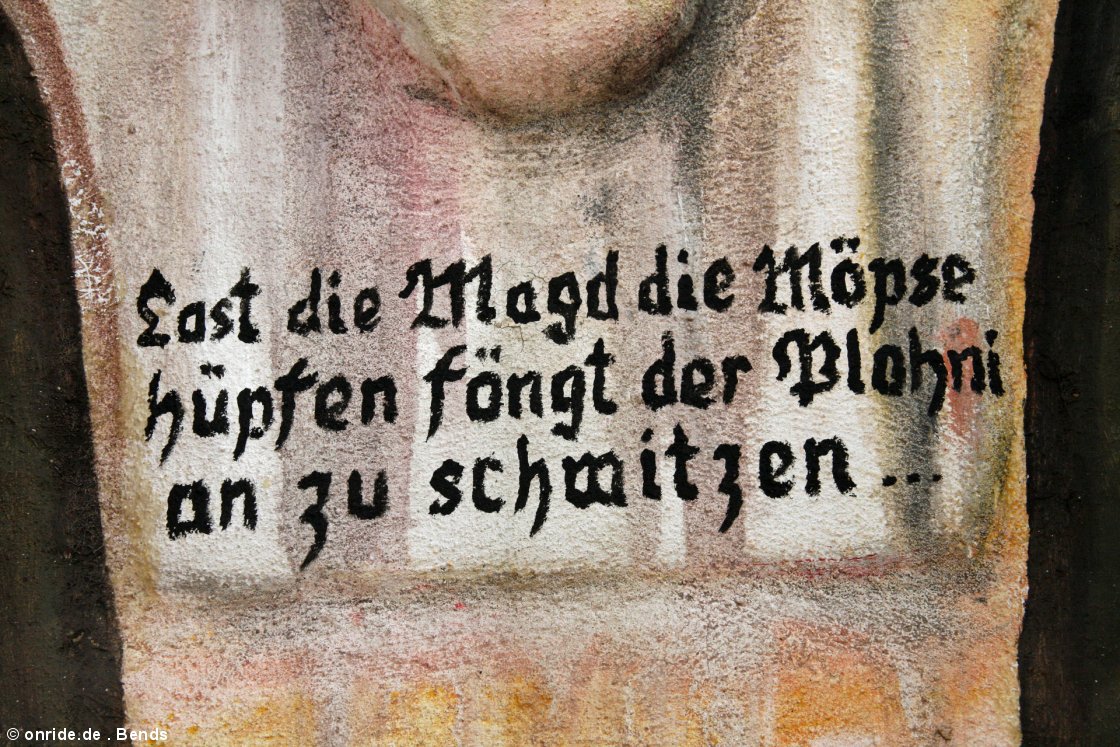 Last die Magd die Möpse
hüpfen föngt der Plohni
an zu schwitzen ...
© onride.de . Bends